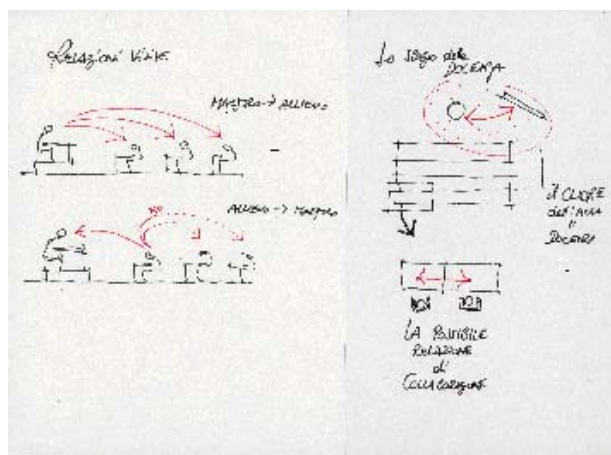 RELAZIONI VISIVE
MAESTRO → ALLIEVO
ALLIEVO → MAESTRO
NO
Lo spazio della
DOCENZA
il CUORE
dell'AULA
DOCENZA
LA POSSIBILE
RELAZIONE
di
COLLABORAZIONE